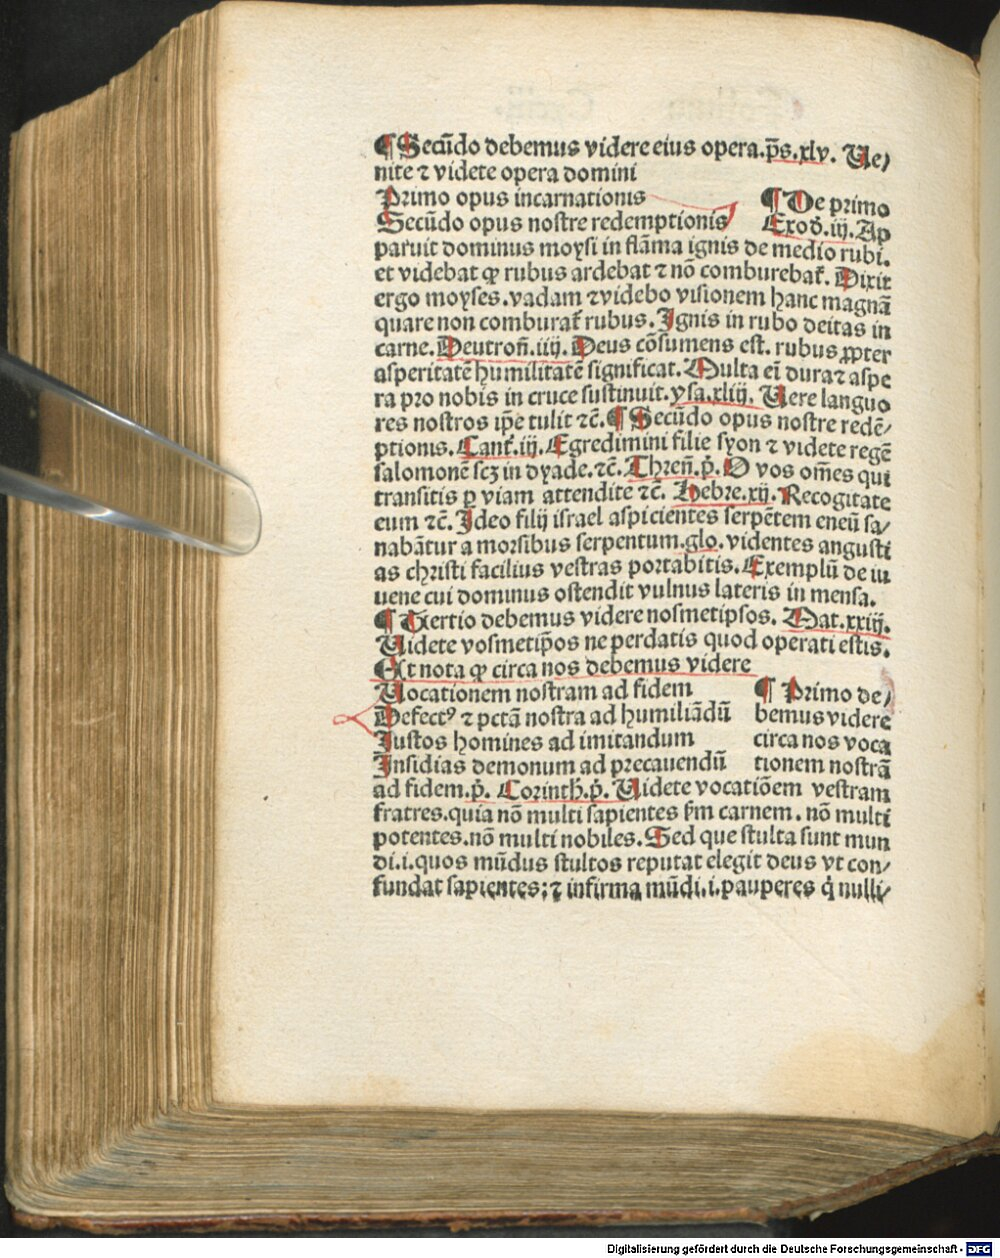 ¶ Secūdo debemus videre eius opera.p̄s.xlv. Ue⸗
nite ⁊ videte opera domini
Primo opus incarnationis
Secūdo opus nostre redemptionis
¶ De primo
Exod̄.iij. Ap
paruit dominus moysi in flāma ignis de medio rubi.
et videbat ꝙ rubus ardebat ⁊ nō comburebat̄. Dixit
ergo moyses.vadam ⁊videbo visionem hanc magnā
quare non comburat̄ rubus. Ignis in rubo deitas in
carne. Deutroñ.iiij. Deus cōsumens est. rubus ꝓpter
asperitatē humilitatē significat. Multa ei dura⁊ aspe
ra pro nobis in cruce sustinuit.ysa.xliij. Uere languo
res nostros ip̄e tulit ⁊c̄. ¶ Secūdo opus nostre redē⸗
ptionis. Cant̄.iij. Egredimini filie syon ⁊ videte regē
salomonē scꝫ in dyade.⁊c̄. Threñ.p̄. O vos om̄es qui
transitis ꝑ viam attendite ⁊c̄. Hebre.xij. Recogitate
eum ⁊c̄. Ideo filij israel aspicientes serpētem eneū sa⸗
nabātur a morsibus serpentum.glo. videntes angusti
as christi facilius vestras portabitis. Exemplū de iu
uene cui dominus ostendit vulnus lateris in mensa.
¶ Tertio debemus videre nosmetipsos. Mat.xxiij.
Uidete vosmetip̄os ne perdatis quod operati estis.
Et nota ꝙ circa nos debemus videre
Uocationem nostram ad fidem
Defectꝰ ⁊ pctā nostra ad humiliādū
Iustos homines ad imitandum
Insidias demonum ad precauendū
¶ Primo de⸗
bemus videre
circa nos voca
tionem nostrā
ad fidem.p̄. Corinth̄.p̄. Uidete vocatiōem vestram
fratres.quia nō multi sapientes ẜm carnem. nō multi
potentes.nō multi nobiles. Sed que stulta sunt mun
di.i.quos mūdus stultos reputat elegit deus vt con⸗
fundat sapientes: ⁊ infirma mūdi.i.pauperes q̇ nulli⸗
Digitalisierung gefördert durch die Deutsche Forschungsgemeinschaft - DFG